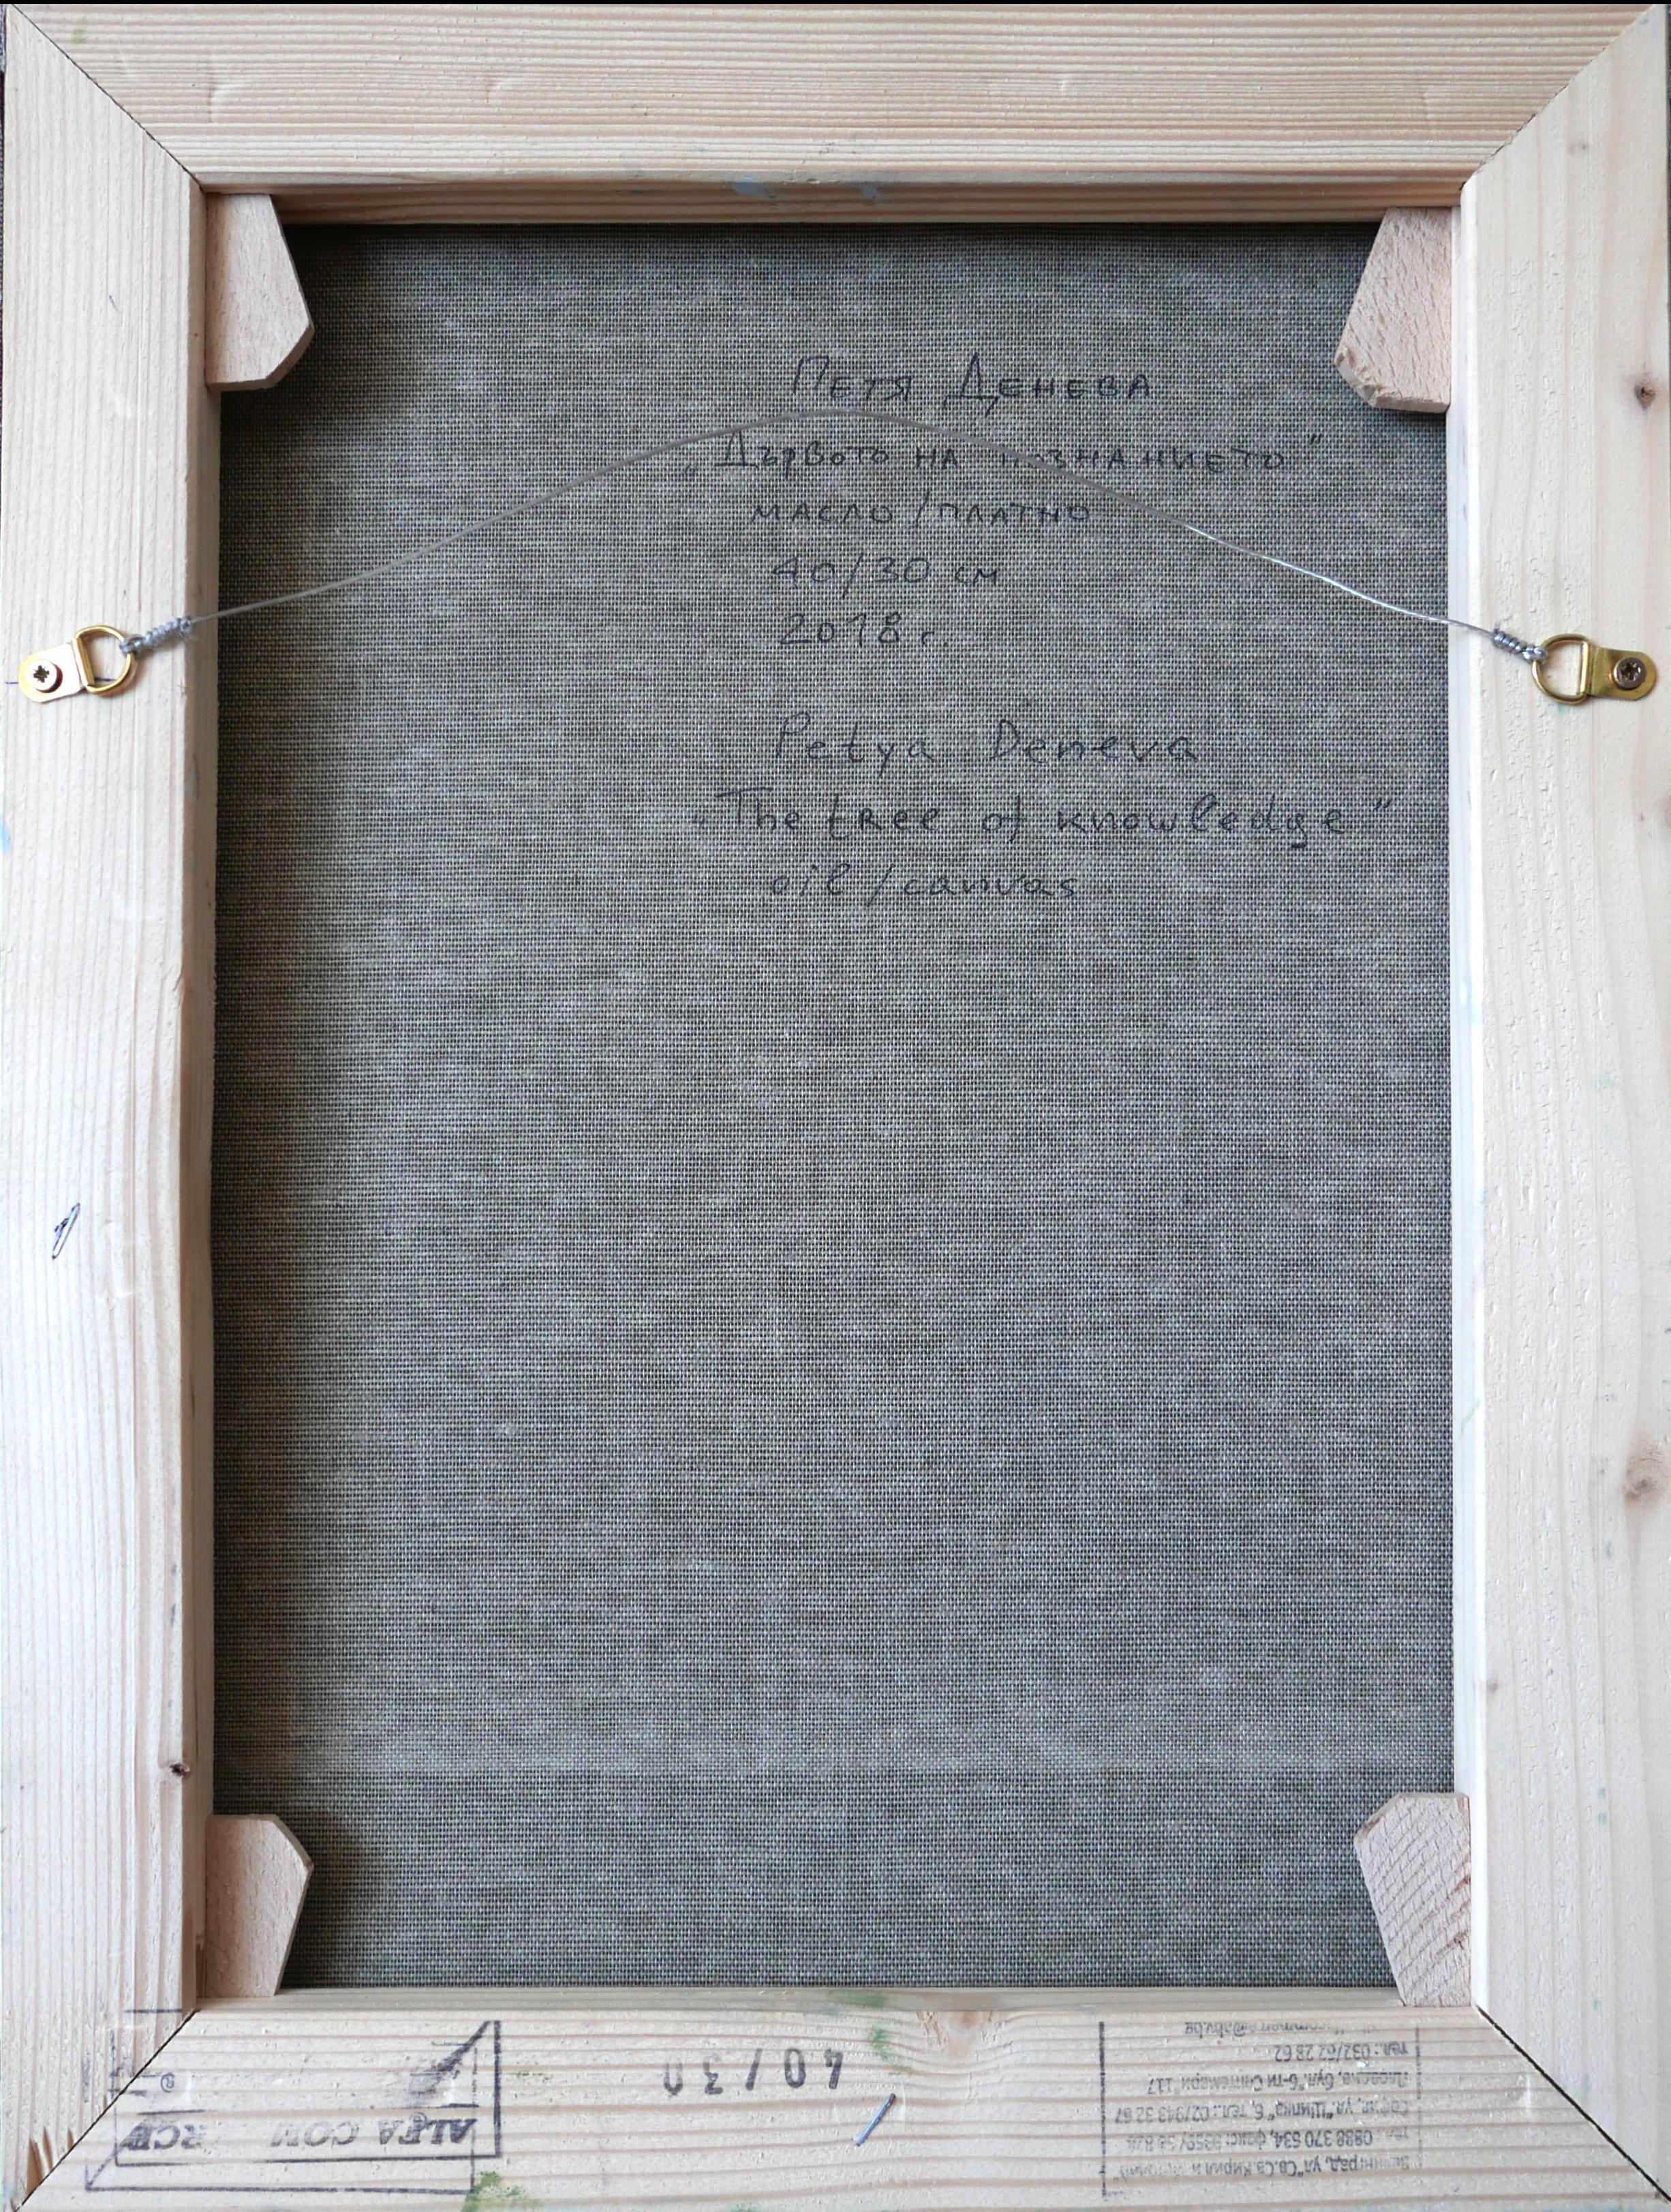 Петя Денева
„Дървото на познанието"
масло/платно
40/30 см
2018 г.
Petya Deneva
„The tree of knowledge"
oil/canvas
40/30
ALFA COM RCE
ул. "Св.Св. Кирил и
0888 370 534, факс:
ул. "Шипка" 6, тел.: 02/943 32 67
бул. "6-ти Септември" 117
тел.: 032/62 28 62
@abv.bg